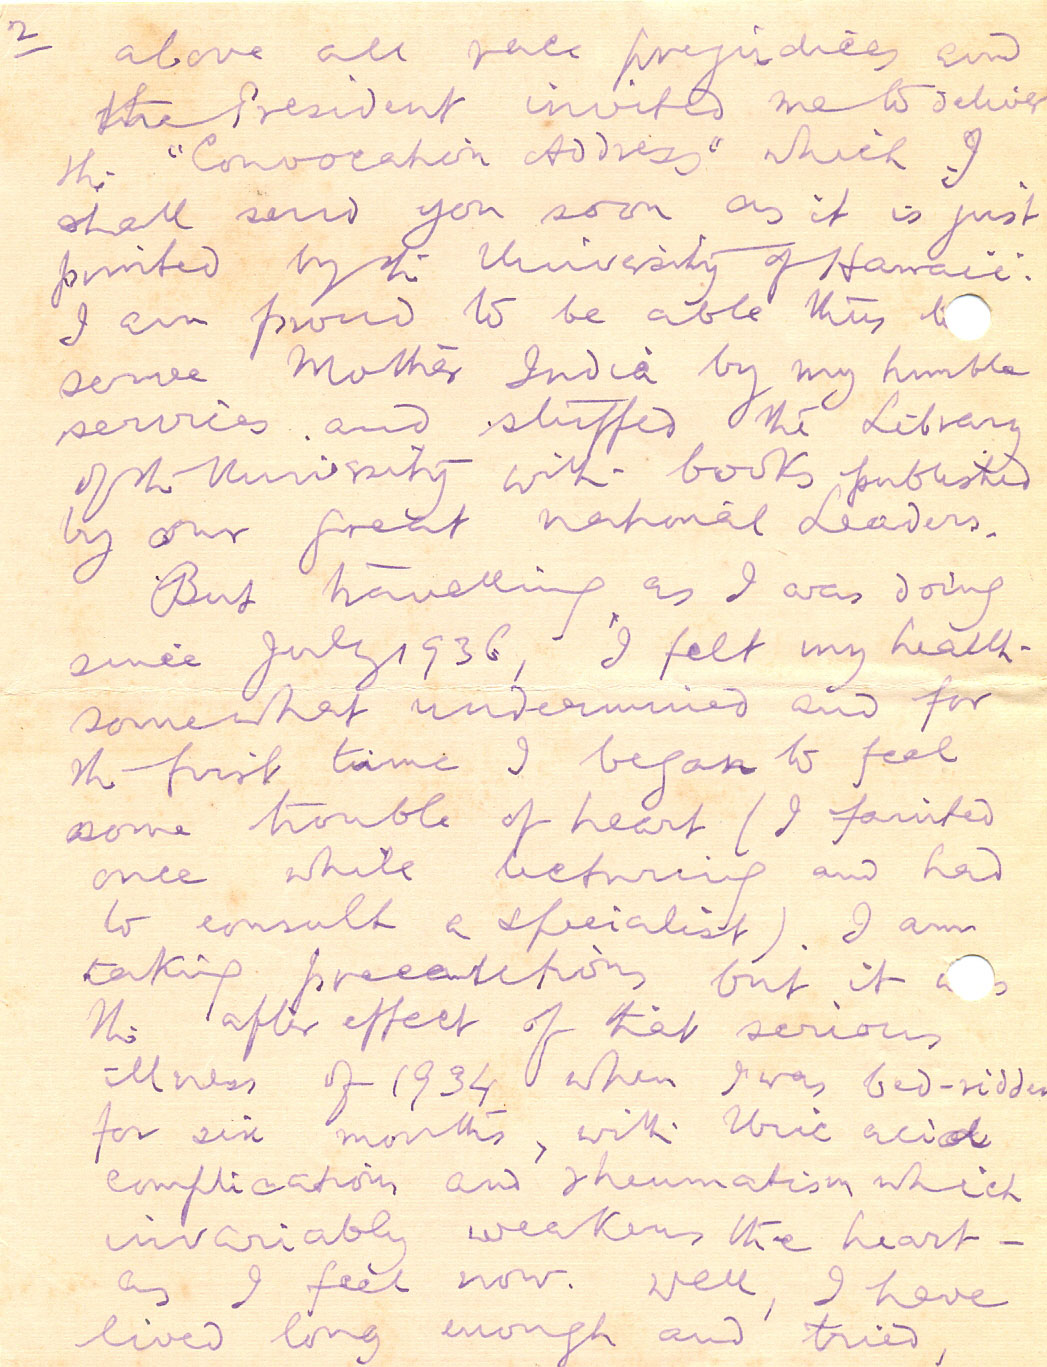 2
above all race prejudices and
the President invited me to deliver
the "Convocation Address" which I
shall send you soon as it is just
printed by the University of Hawaii.
I am proud to be able thus
serve Mother India by my humble
services and stuffed the Library
of the University with books published
by our great national Leaders.
But travelling as I was doing
since July 1936, I felt my health
somewhat undermined and for
the first time I began to feel
some trouble of heart (I fainted
once while lecturing and had
to consult a specialist). I am
taking precautions but it was
the after effect of that serious
illness of 1934 when I was bed-ridden
for six months, with Uric acid
complications and rheumatism which
invariably weakens the heart -
as I feel now. Well, I have
lived long enough and tried,